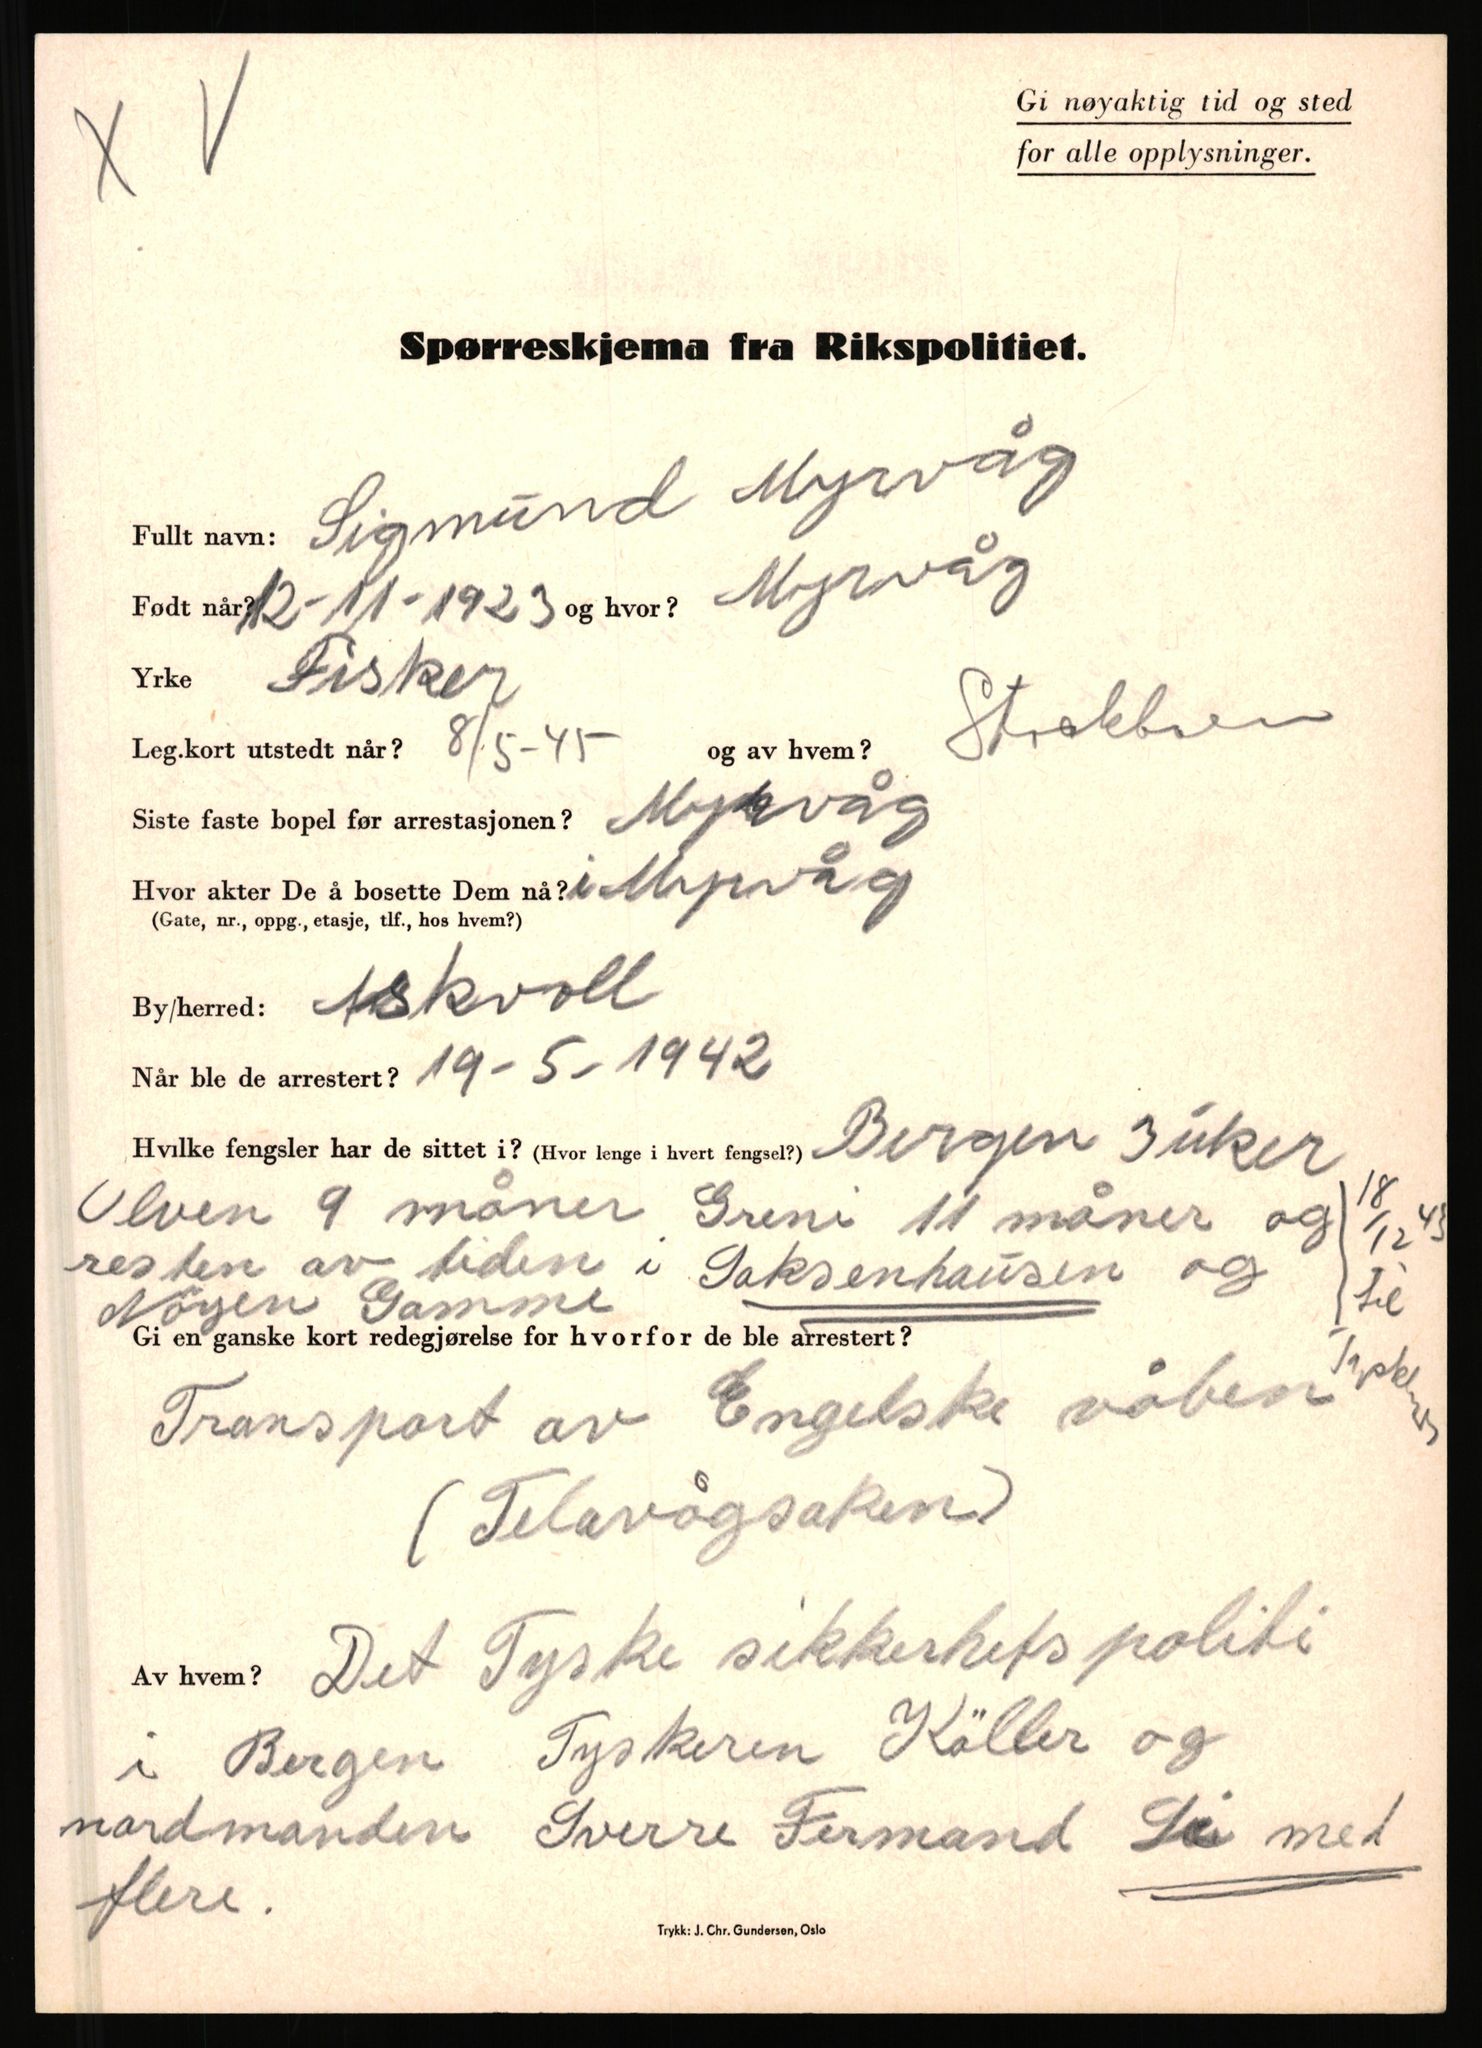 X V
Gi nøyaktig tid og sted
for alle opplysninger.
Spørreskjema fra Rikspolitiet.
Fullt navn: Sigmund Myrvåg
Født når? 12-11-1923 og hvor? Myrvåg
Yrke Fisker
Leg.kort utstedt når? 8/5-45 og av hvem?
Siste faste bopel før arrestasjonen? Myrvåg
Hvor akter De å bosette Dem nå? i Myrvåg
(Gate, nr., oppg., etasje, tlf., hos hvem?)
By/herred: Askvoll
Når ble de arrestert? 19-5-1942
Hvilke fengsler har de sittet i? (Hvor lenge i hvert fengsel?) Bergen 3 uker
Ulven 9 måner Greni 11 måner og
resten av tiden i Saksenhausen og
Nöyen Gamme
18/12 43
til
Gi en ganske kort redegjørelse for hvorfor de ble arrestert?
Transport av Engelske våben
(Telavågsaken)
Av hvem? Det Tyske sikkerhets politi
i Bergen Tyskeren Köller og
nordmanden Sverre Fermand med
flere.
Trykk: J. Chr. Gundersen, Oslo